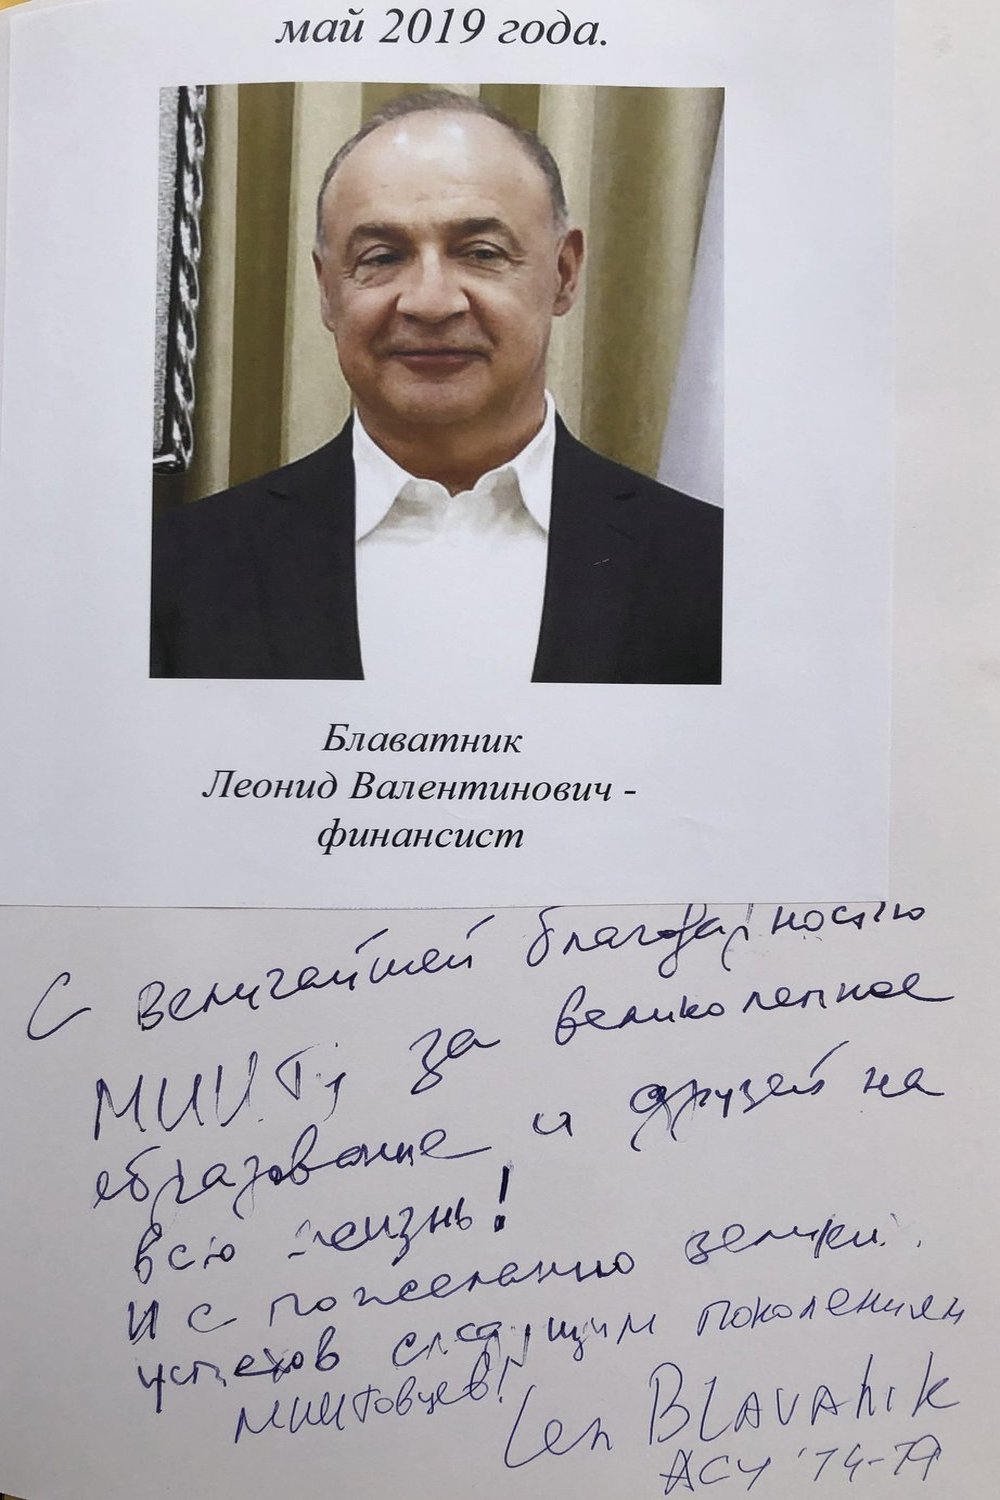 май 2019 года.
Блаватник
Леонид Валентинович -
финансист
С величайшей благодарностью
МИИТу за великолепное
образование и друзей на
всю жизнь!
И с пожеланию
успехов следующим поколениям
МИИТовцев!
Len BLAVATNIK
АСУ '74-79